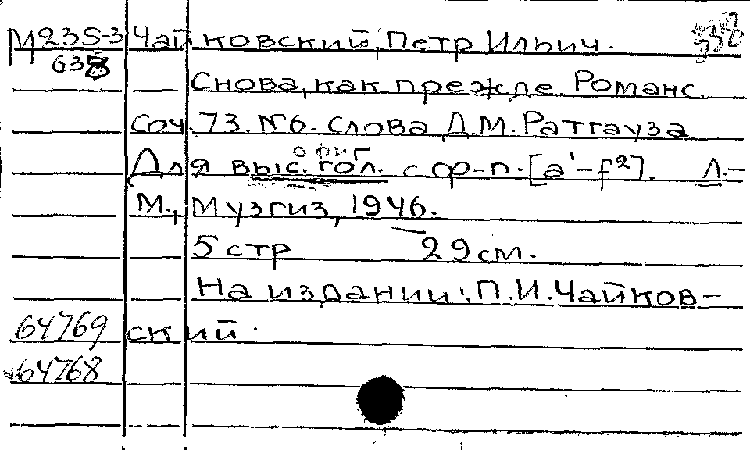 М235-3 Чайковский, Петр Ильич. 332
638
Снова, как прежде. Романс.
Соч. 73. №6. Слова Д.М. Ратгауза
ориг
Для выс. гол. с ф-п. [a'-f²]. Л.-
М., Музгиз, 1946.
5 стр 29 см.
На издании: П.И. Чайков-
64769 ский.
64768